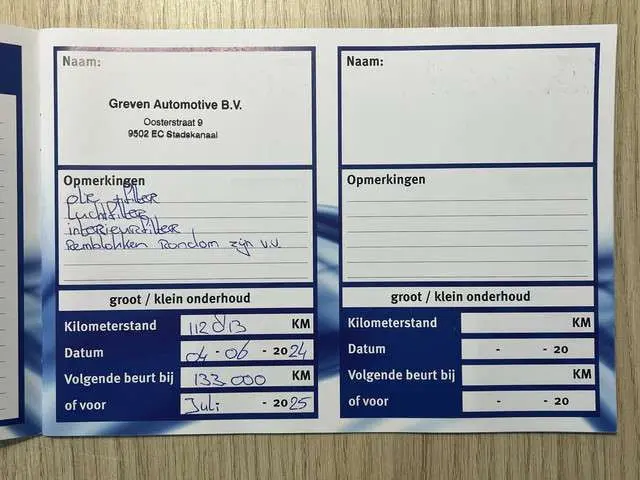 Naam:
Greven Automotive B.V.
Oosterstraat 9
9502 EC Stadskanaal
Opmerkingen
olie + filter
Luchtfilter
interieurfilter
Remblokken Rondom zijn v.v.
groot / klein onderhoud
Kilometerstand 112813 KM
Datum 04 - 06 - 2024
Volgende beurt bij 133.000 KM
of voor Juli - 2025
Naam:
Opmerkingen
groot / klein onderhoud
Kilometerstand KM
Datum - - 20
Volgende beurt bij KM
of voor - - 20